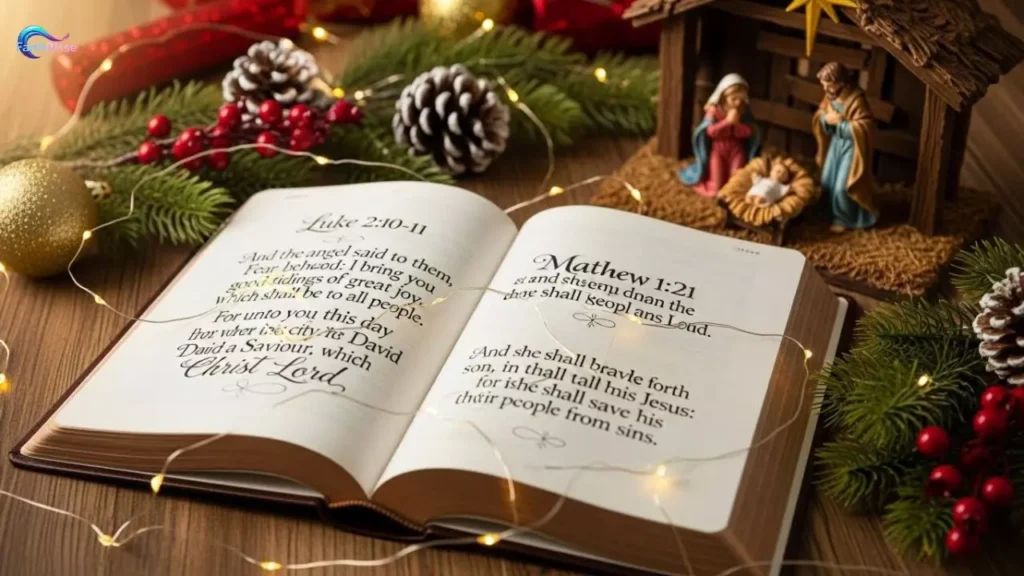 Luke 2:10-11
And the angel said to them,
Fear behood: I bring you
good tidings of great joy,
which shall be to all people.
For unto you this day
David
David a Saviour, which
Christ Lord
Mathew 1:21
and dnan the
shall Lord.
And she shall bravle forth
son, in thall tall his Jesus:
for ishe shall save his
their people from sins.